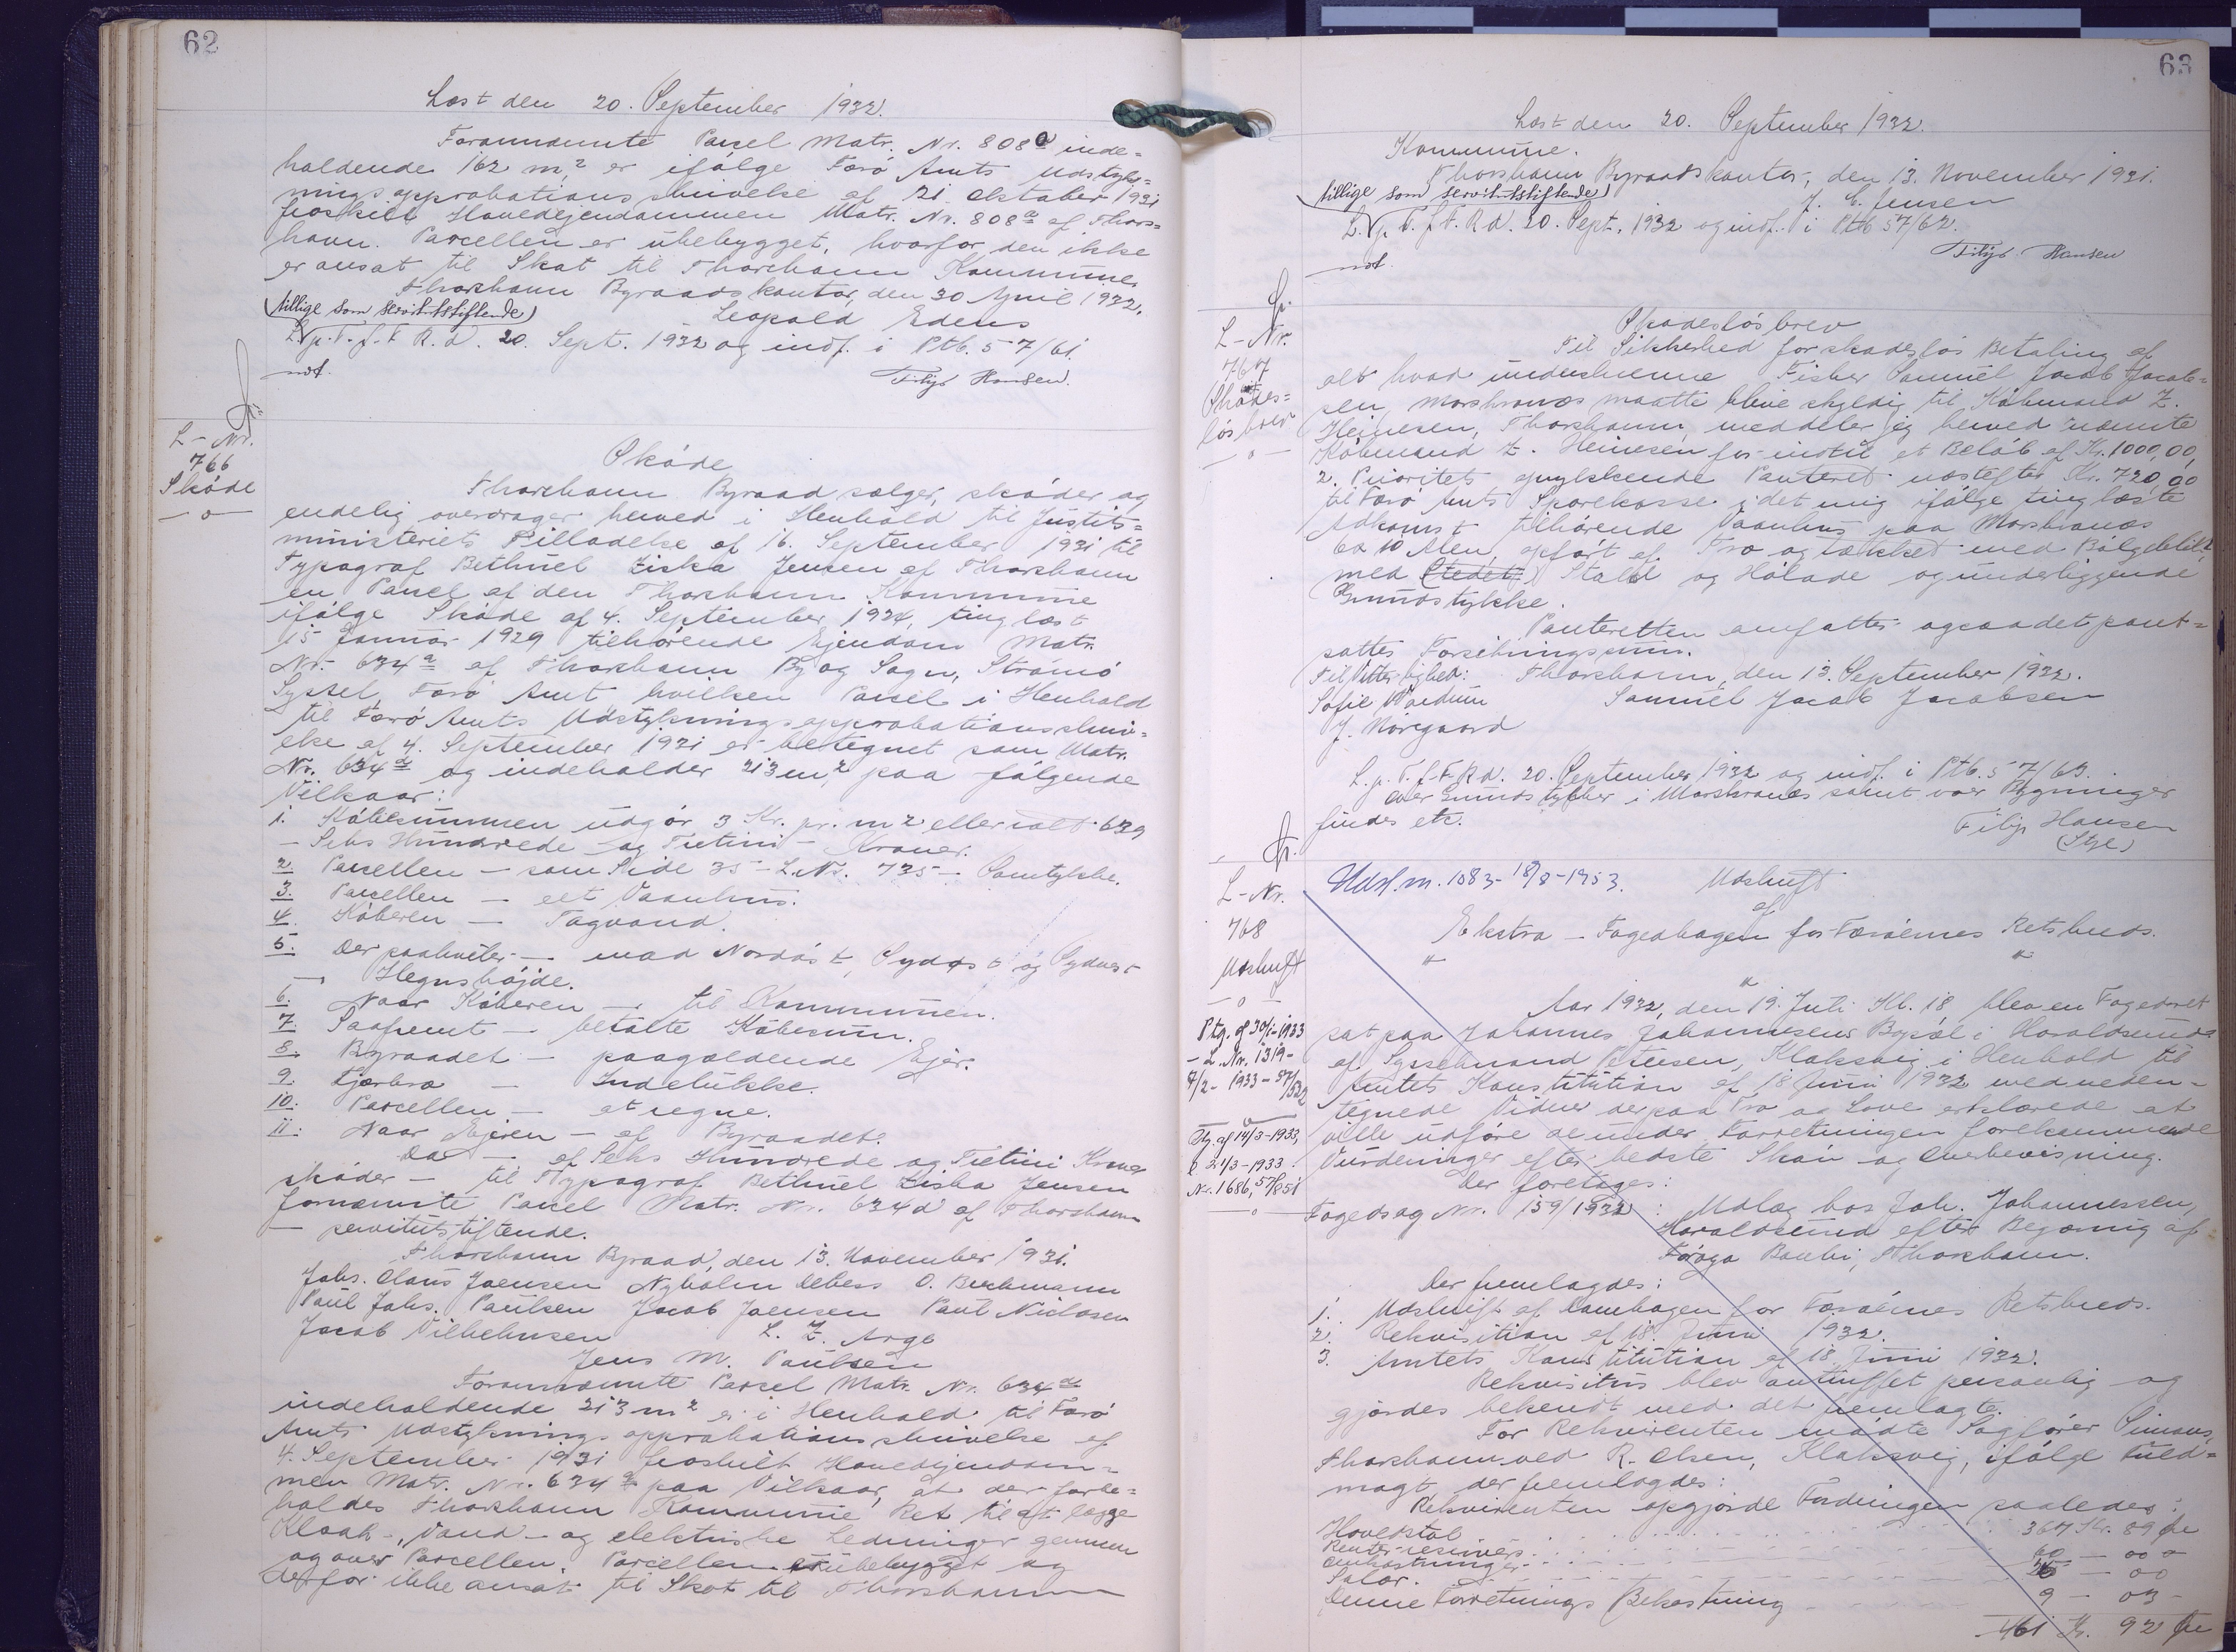 62
Læst den 20. September 1932.
Forannævnte Parcel Matr. Nr. 808 e inde=
holdende 162 m², er ifølge Færø Amts Udstyk=
ningsapprobationsskrivelse af 21. Oktober 1921
fraskilt Hovedejendommen Matr. Nr. 808 a af Thors=
havn. Parcellen er ubebygget, hvorfor den ikke
er ansat til Skat til Thorshavn Kommune.
Thorshavn Byraadskontor, den 30 April 1932.
(tillige som servitutstiftende)
Leopold Edens
L. p. T. f. F. R. d. 20. Sept. 1932 og indf. i Ptb. 57/61.
ndt.
Filip Hansen.
L-Nr.
766
Skøde
— o —
Skøde
Thorshavn Byraad sælger, skøder og
endelig overdrager herved i Henhold til Justits=
ministeriets Tilladelse af 16. September 1931 til
Typograf Bethuel Ziska Jensen af Thorshavn
en Parcel af den Thorshavn Kommune
ifølge Skøde af 4. September 1924, tinglæst
15 Januar 1929 tilhørende Ejendom Matr.
Nr. 634 a af Thorshavn By og Sogn, Strømø
Syssel, Færø Amt hvilken Parcel i Henhold
til Færø Amts Udstykningsapprobationsskriv=
else af 4. September 1931 er betegnet som Matr.
Nr. 634 d og indeholder 213 m², paa følgende
Vilkaar:
1. Købesummen udgør 3 Kr. pr. m2 eller ialt 639
— Seks Hundrede og Tretini — Kroner.
2. Parcellen — som Side 35 - L.Nr. 735 — Samtykke.
3. Parcellen — eet Vaanhus.
4. Køberen — Tagvand.
5. Der paahviler — mod Nordøst, Sydøst og Sydvest
— Hegnshøjde.
6. Naar Køberen — til Kommunen.
7. Saafremt — betalte Købesum.
8. Byraadet — paagældende Ejer.
9. Fjerkræ — Indelukke.
10. Parcellen — at regne.
11. Naar Ejeren — af Byraadet.
Da — af Seks Hundrede og Tretini Kroner
skøder — til Typograf Bethuel Ziska Jensen
fornævnte Parcel Matr. Nr. 634 d af Thorshavn
— servitutstiftende.
Thorshavn Byraad, den 13. November 1931.
Johs. Claus Joensen Nyholm Debess O. Backmann
Paul Johs. Paulsen Jacob Joensen Paul Niclasen
Jacob Vilhelmsen L. Z. Arge
Jens M. Paulsen
Forannævnte Parcel Matr. Nr. 634 d
indeholdende 213 m² er i Henhold til Færø
Amts Udstykningsapprobationsskrivelse af
4. September 1931 fraskilt Hovedejendom=
men Matr. Nr. 634 a paa Vilkaar, at der forbe=
holdes Thorshavn Kommune Ret til at lægge
Kloak-, Vand- og elektriske Ledninger gennem
og over Parcellen. Parcellen er ubebygget og
derfor ikke ansat til Skat til Thorshavn
63
Læst den 20. September 1932.
Kommune.
Thorshavn Byraadskontor, den 13. November 1931.
(tillige som servitutstiftende)
J. E. Jensen
L. p. T. f. F. R. d. 20. Sept. 1932 og indf. i Ptb 57/62.
ndt.
Filip Hansen
L-Nr.
767
Skades=
løsbrev
— o —
Skadesløsbrev
Til Sikkerhed for skadesløs Betaling af
alt hvad underskrevne Fisker Samuel Jacob Jacob=
sen, Morskranæs maatte blive skyldig til Købmand Z.
Heinesen, Thorshavn, meddeler jeg herved nævnte
Købmand Z. Heinesen for indtil et Beløb af Kr. 1000,00,
2. Prioritets oprykkende Panteret næstefter Kr. 720,00
til Færø Amts Sparekasse i det mig ifølge tinglæste
Adkomst tilhørende Vaanhus paa Morskranæs
6 x 10 Alen, opført af Træ og tækket med Bølgeblik
med (Stedet) Stald og Hølade og underliggende
Grundstykke.
Panteretten omfatter ogsaa det pant=
sattes Forsikringssum.
Til Vitterlighed: Thorshavn, den 13. September 1932.
Sofie Wardum Samuel Jacob Jacobsen
J. Nørgaard
L. p. T. f. F. R d. 20. September 1932 og indf. i Ptb. 57/63.
over Grundstykker i Morskranæs samt hvor Bygninger
findes etc.
Filip Hansen
L-Nr.
768
Udskrift
— o —
Udsl. m. 1083 - 18/8-1953.
Udskrift
af
Ekstra-Fogedbogen for Færøernes Retskreds.
" " "
Aar 1932, den 19. Juli Kl. 18 blev en Fogedret
sat paa Johannes Johannesens Bopæl i Haraldssund
af Sysselmand Petersen, Klaksvig i Henhold til
Amtets Konstitution af 18 Juni 1932 med neden=
tegnede Vidner der paa Tro og Love erklærede at
ville udføre de under Forretningen forekommende
Vurderinger efter bedste Skøn og Overbevisning.
Ptg. af 30/1-1933
- L. Nr. 1319 -
7/2-1933 - 57/522
— o —
Ptg. af 14/3-1933,
21/3-1933.
Nr. 1686, 57/851
— o —
Der foretoges:
Fogedsag Nr. 159/1932: Udlæg hos Joh. Johannessen,
Haraldssund efter Begæring af
Føroya Banki, Thorshavn.
Der fremlagdes:
1. Udskrift af Dombogen for Færøernes Retskreds.
2. Rekvisition af 18. Juni 1932.
3. Amtets Konstitution af 18 Juni 1932.
Rekvisitus blev antruffet personlig og
gjordes bekendt med det fremlagte.
For Rekvirenten mødte Sagfører Simons,
Thorshavn ved R. Olsen, Klaksvig, ifølge Fuld=
magt, der fremlagdes:
Rekvirenten opgjorde Fordringen saaledes:
Hovedstol 367 Kr. 89 Øre
Renter reserveres
Omkostninger 60 — 00 -
Salær 25 — 00
Denne Forretnings Bekostning 9 — 03 -
461 Kr. 92 Øre